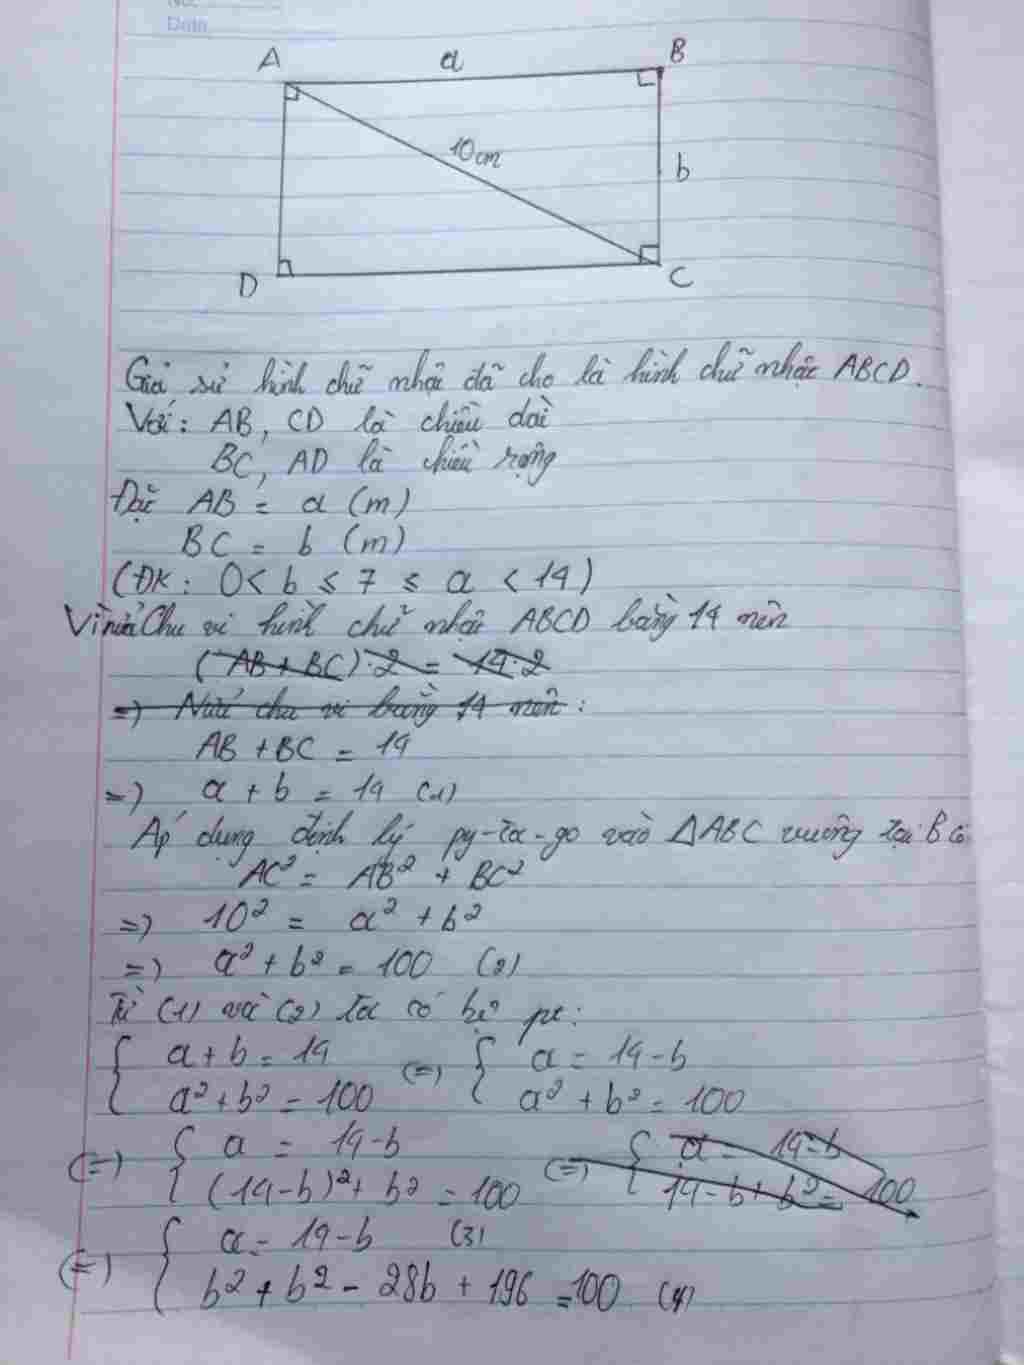 No.
Date
A
a
B
10cm
b
D
C
Giả sử hình chữ nhật đã cho là hình chữ nhật ABCD.
Với: AB, CD là chiều dài
BC, AD là chiều rộng
Đặt AB = a (m)
BC = b (m)
(ĐK: 0 < b ≤ 7 ≤ a < 14)
Vì nửa Chu vi hình chữ nhật ABCD bằng 14 nên
(AB + BC).2 = 14.2
=) Nửa chu vi bằng 14 nên:
AB + BC = 14
=) a + b = 14 (1)
Áp dụng định lý py-ta-go vào △ABC vuông tại B có
AC² = AB² + BC²
=) 10² = a² + b²
=) a² + b² = 100 (2)
Từ (1) và (2) ta có hệ pt:
{ a + b = 14 (=) { a = 14 - b
a² + b² = 100 a² + b² = 100
(=) { a = 14 - b (=) { a = 14 - b
(14 - b)² + b² = 100 14 - b + b² = 100
(=) { a = 14 - b (3)
b² + b² - 28b + 196 = 100 (4)